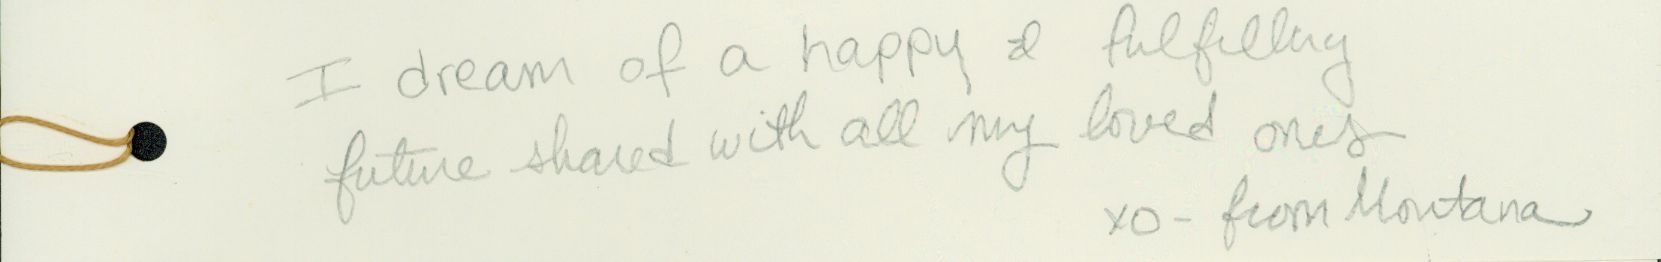 I dream of a happy & fulfilling
future shared with all my loved ones
xo - from Montana